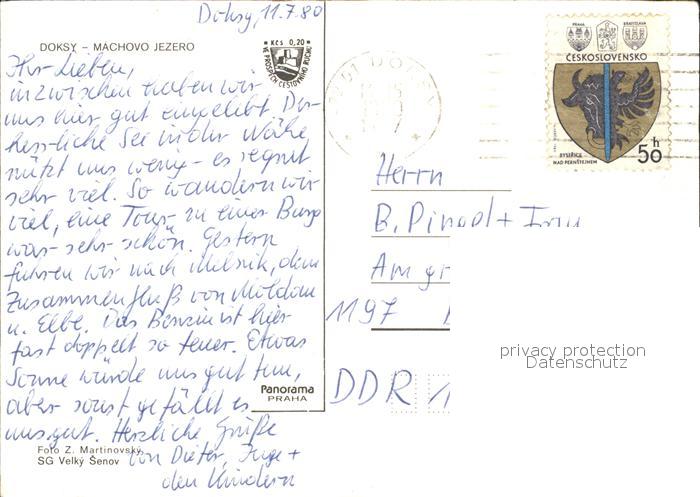 Doksy, 11.7.80
DOKSY – MÁCHOVO JEZERO
Kčs 0,20
VE PROSPĚCH CESTOVNÍHO RUCHU
Ihr Lieben,
inzwischen haben wir
uns hier gut eingelebt. Der
herrliche See in der Nähe
nützt uns wenig - es regnet
sehr viel. So wandern wir
viel, eine Tour zu einer Burg
war sehr schön. Gestern
fuhren wir nach Melnik, dem
Zusammenfluß von Moldau
u. Elbe. Das Benzin ist hier
fast doppelt so teuer. Etwas
Sonne würde uns gut tun,
aber sonst gefällt es
uns gut. Herzliche Grüße
von Dieter, Inge +
den Kindern
Panorama
PRAHA
Foto Z. Martinovský
SG Velký Šenov
PRAHA
BRATISLAVA
ČESKOSLOVENSKO
BYSTŘICE
NAD PERNŠTEJNEM
50 h
Herrn
B. +
Am
1197
DDR
privacy protection
Datenschutz